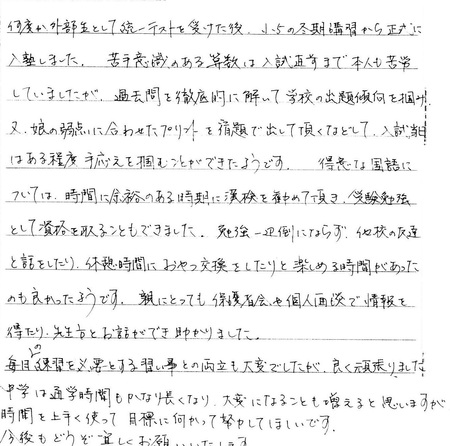 何度か外部生として統一テストを受けた後、小5の冬期講習から正式に
入塾しました。 苦手意識のある算数は入試直前まで本人も苦労
していましたが、過去問を徹底的に解いて学校の出題傾向を掴み
又、娘の弱点に合わせたプリントを宿題で出して頂くなどして、入試当日
はある程度手応えを掴むことができたようです。 得意な国語に
ついては、時間に余裕のある時期に漢検を勧めて頂き、受験勉強
として資格を取ることもできました。勉強一辺倒にならず、他校の友達
と話をしたり、休憩時間におやつ交換をしたりと楽しめる時間があった
のも良かったようです。 親にとっても保護者会や個人面談で情報を
得たり、先生方とお話ができ助かりました。
毎日の練習を必要とする習い事との両立も大変でしたが、良く頑張りました
中学は通学時間もかなり長くなり、大変になることも増えると思いますが
時間を上手く使って目標に向かって努力してほしいです。
今後もどうぞ宜しくお願いいたします